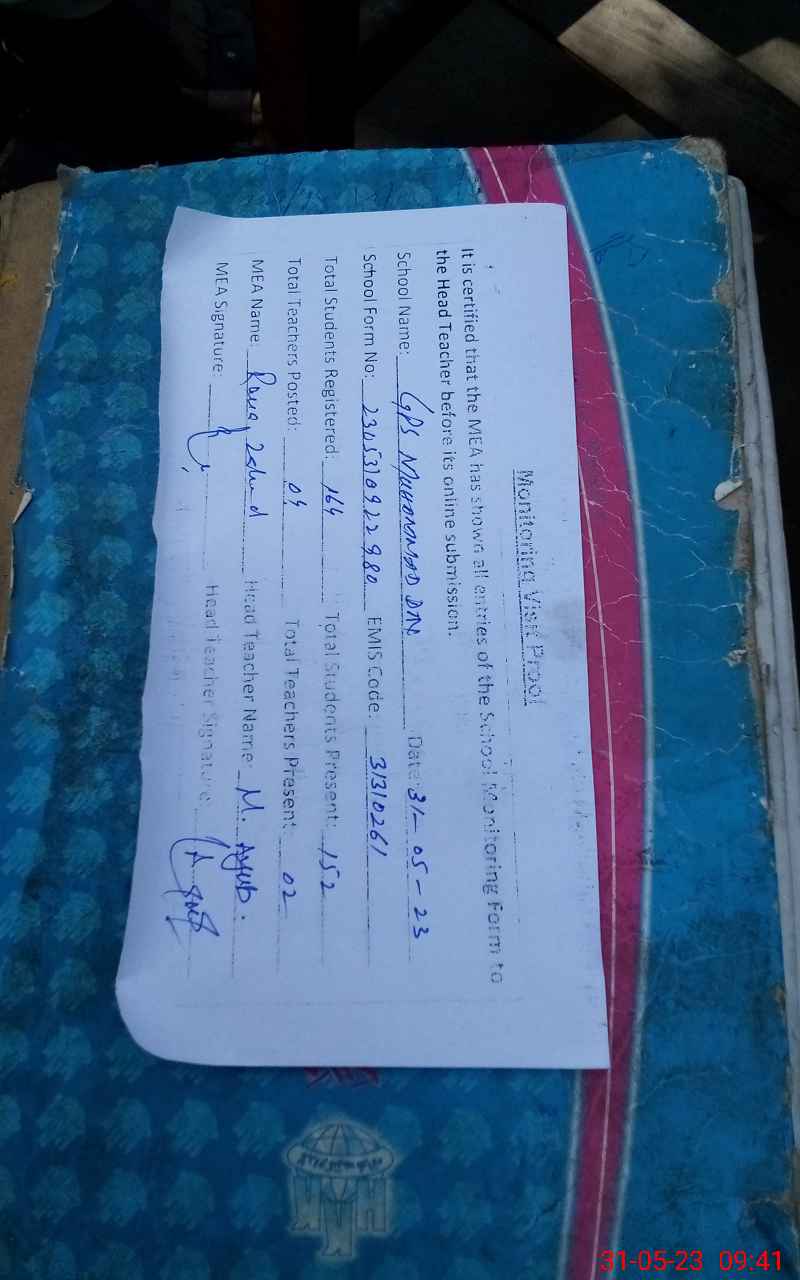 Monitoring Visit Proof
It is certified that the MEA has shown all entries of the School Monitoring Form to
the Head Teacher before its online submission.
School Name: GPS MUHAMMAD DIN Date: 31-05-23
School Form No: 2305310922980 EMIS Code: 31310261
Total Students Registered: 164 Total Students Present: 152
Total Teachers Posted: 04 Total Teachers Present: 02
MEA Name: Rana Head Teacher Name: M. Ayub.
MEA Signature: Head Teacher Signature:
31-05-23 09:41